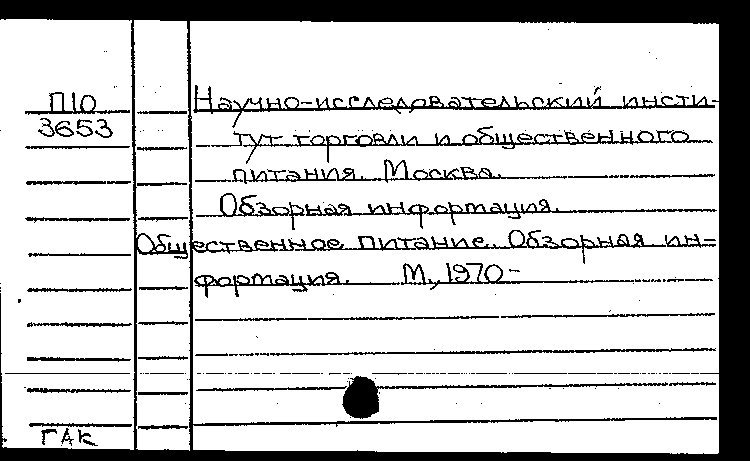 П10
3653
Научно-исследовательский инсти-
тут торговли и общественного
питания. Москва.
Обзорная информация.
Общественное питание. Обзорная ин=
формация. М., 1970-
ГАК